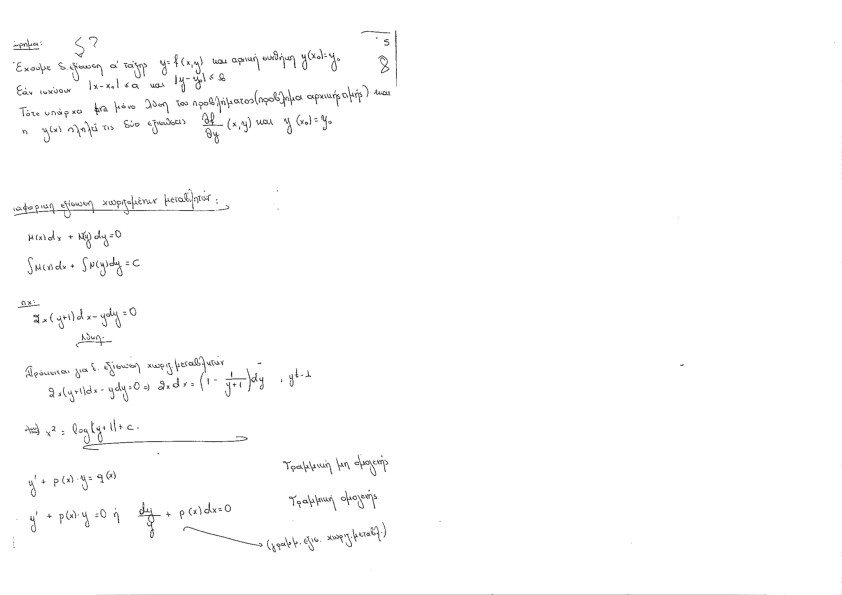 ώρημα: 5?
5
8
Έχουμε δ. εξίσωση α' τάξης y=f(x,y) και αρχική συνθήκη y(x₀)=y₀
Εάν ισχύουν |x-x₀| ≤ a και |y-y₀| ≤ β
Τότε υπάρχει μια μόνο λύση του προβλήματος (πρόβλημα αρχικής τιμής) και
η y(x) πληρεί τις δύο εξισώσεις ∂f/∂y (x,y) και y(x₀)=y₀
ιαφορική εξίσωση χωριζομένων μεταβλητών:
M(x)dx + N(y)dy=0
∫M(x)dx + ∫N(y)dy=C
πχ:
2x(y+1)dx-ydy=0
Λύση:
Πρόκειται για δ. εξίσωση χωριζ. μεταβλητών
2x(y+1)dx-ydy=0 ⇒ 2xdx = (1 - 1/(y+1))dy , y≠-1
x² = log|y+1|+c.
y' + p(x)·y = q(x) Γραμμική μη ομογενής
y' + p(x)·y = 0 ή dy/y + p(x)dx=0 Γραμμική ομογενής
(γραμμ. εξισ. χωριζ. μεταβλ.)